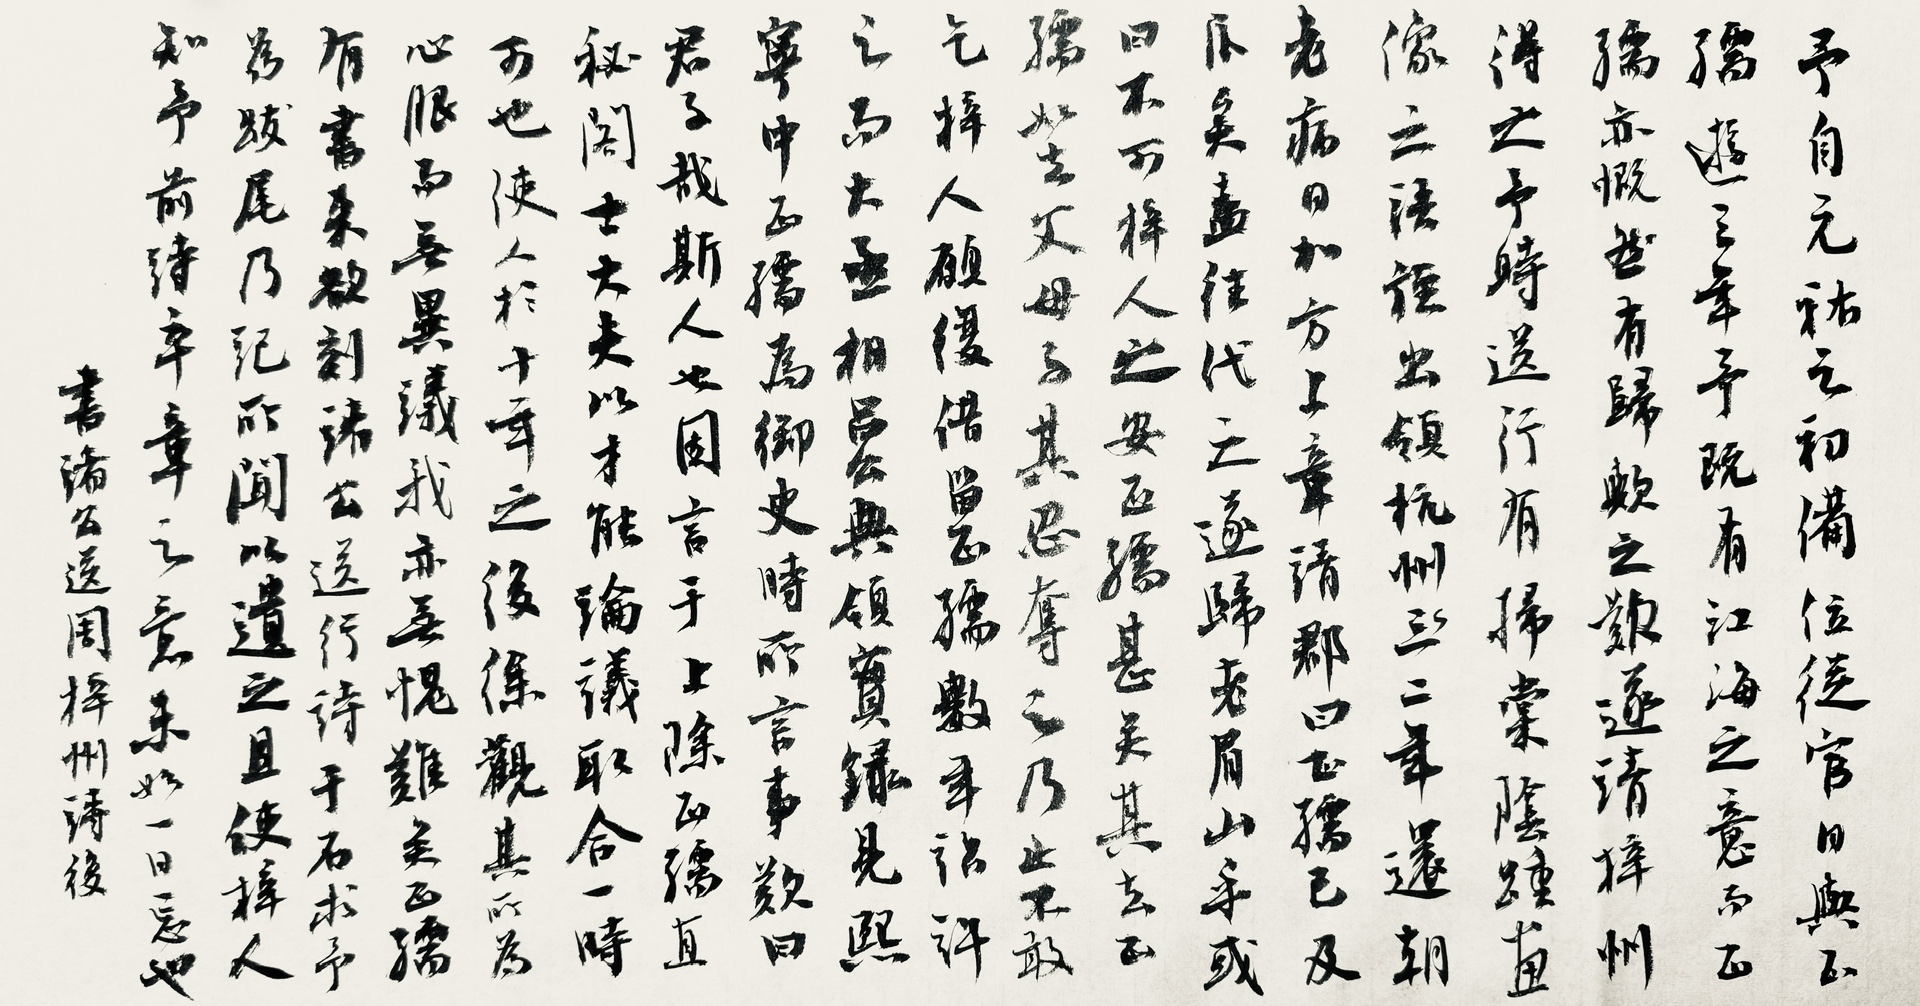 予自元祐之初備位從官日與正
孺遊三年予既有江海之意而正
孺亦慨然有歸歟之歎遂請梓州
得之予時送行有掃棠陰踵畫
像之語種出領杭州三二年還朝
老病日加方上章請郡曰正孺已及
瓜矣盍往代之遂歸老眉山乎或
曰不可梓人之安正孺甚矣其去正
孺如去父母子其忍奪之乃止不敢
乞梓人願復借留正孺數年詔許
之而大丞相呂公典領實錄見熙
寧中正孺為御史時所言事歎曰
君子哉斯人也因言于上除正孺直
秘閣士大夫以才能論議取合一時
可也使人於十年之後徐觀其所為
心服而無異議我亦無愧難矣正孺
有書來欲刻諸公送行詩于石求予
為跋尾乃記所聞以遺之且使梓人
知予前詩卒章之意未始一日忘也
書諸公送周梓州詩後